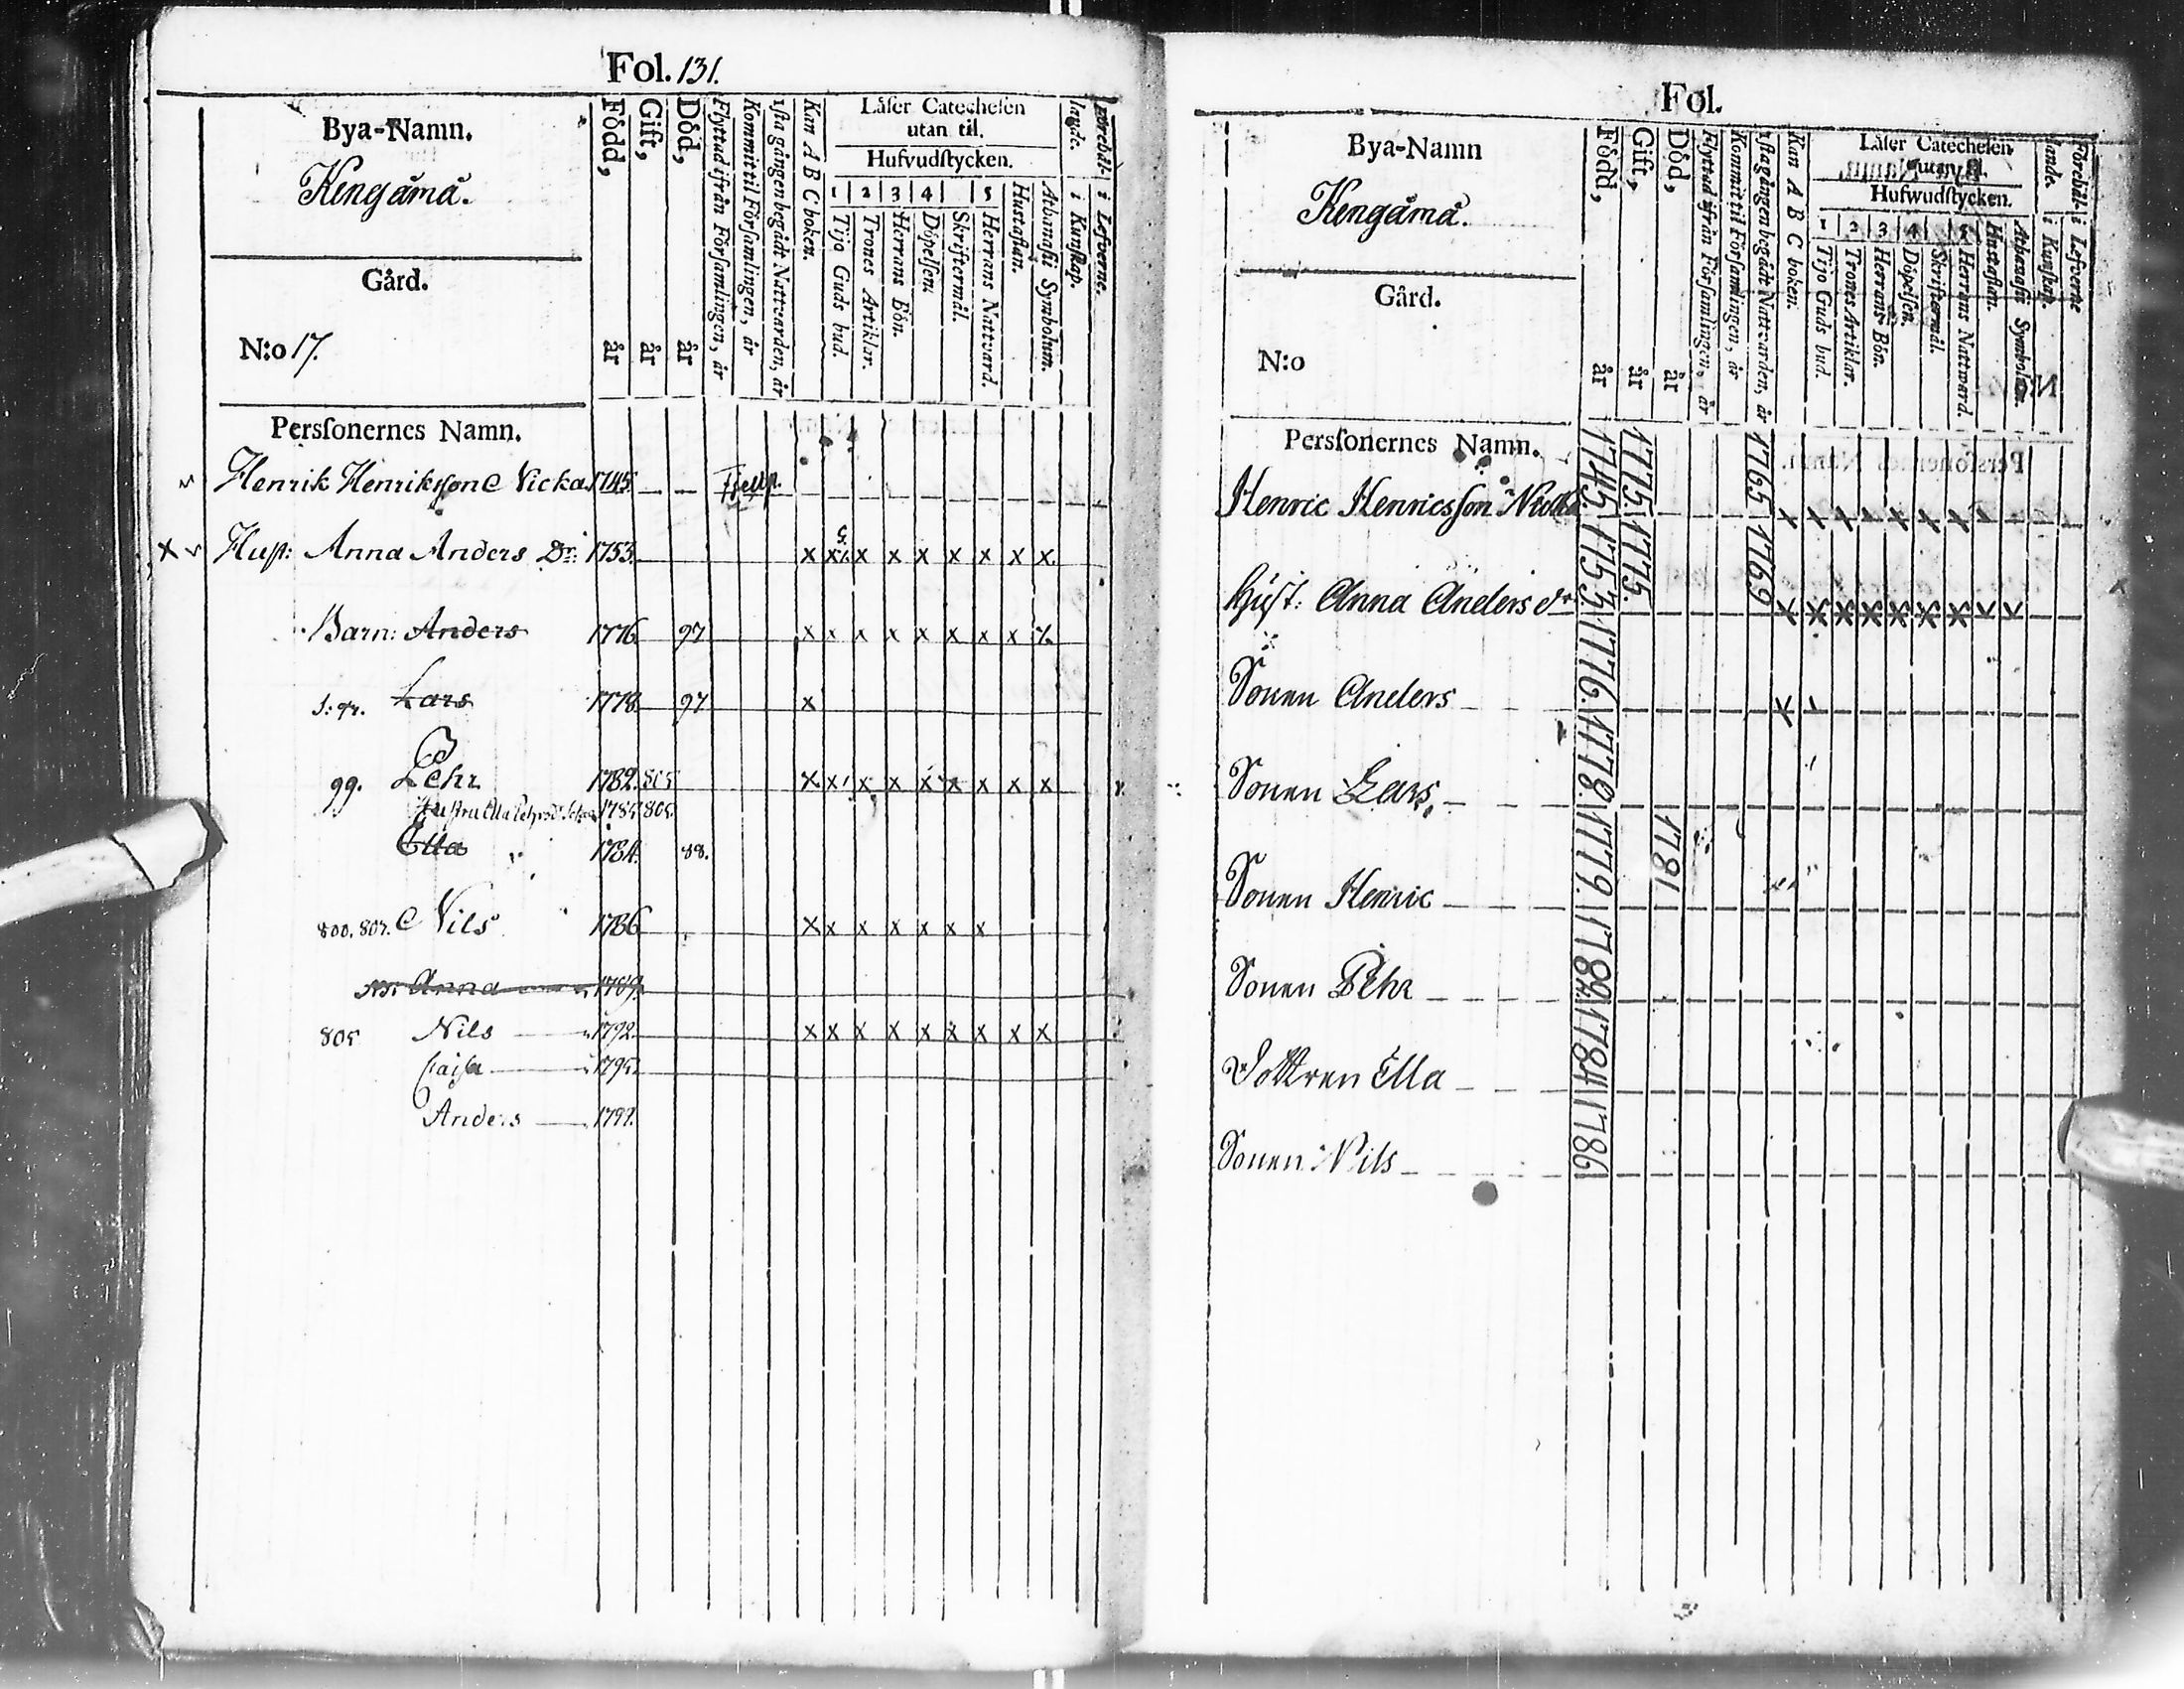 Fol. 131.
Bya-Namn.
Kengämä.
Gård.
N:o 17.
Persſonernes Namn.
Född, år
Gift, år
Död, år
Flyttad ifrån Förſamlingen, år
Kommit til Förſamlingen, år
1ſta gången begådt Nattvarden, år
Kan A B C boken.
Läſer Catecheſen
utan til.
Hufvudſtycken.
1 2 3 4 5
Tijo Guds bud.
Trones Artiklar.
Herrans Bön.
Döpelſen.
Skriftermål.
Herrans Nattvard.
Huſtaflan.
Athanaſii Symbolum.
Förehål-
lande.
i Kunſkap.
i Lefverne.
Henrik Henriksſon Nicka 1745. — —
x Huſt: Anna Anders Dr: 1753. x x x x x x x x x
Barn: Anders 1776 97 x x x x x x x x x
Lars 1778 97 x
99. Pehr 1782. 805 x x x x x x x x x
1785 805.
Ella 1784. 88.
800. 807. Nils 1786 x x x x x x x
Anna 1789.
805 Nils — 1792. x x x x x x x x x
Caisa — 1795.
Anders — 1797.
Fol.
Bya-Namn
Kengämä.
Gård.
N:o
Persſonernes Namn.
Född, år
Gift, år
Död, år
Flyttad ifrån Förſamlingen, år
Kommit til Förſamlingen, år
1ſta gången begådt Nattvarden, år
Kan A B C boken.
Läſer Catecheſen
Hufwudſtycken.
1 2 3 4 5
Tijo Guds bud.
Trones Artiklar.
Herrans Bön.
Döpelſen.
Skriftermål.
Herrans Nattward.
Huſtaflan.
Athanaſii Symbolum.
Förehål-
lande.
i Kunſkap.
i Lefverne
Henric Henricsſon Nicka 1745. 1775. 1765 x x x x x x x
Huſt: Anna Anders dr 1753. 1775. 1769 x x x x x x x x x
Sonen Anders 1776. x
Sonen Lars 1778.
Sonen Henric 1779. 1781
Sonen Pehr 1782
Dottren Ella 1784
Sonen Nils 1786